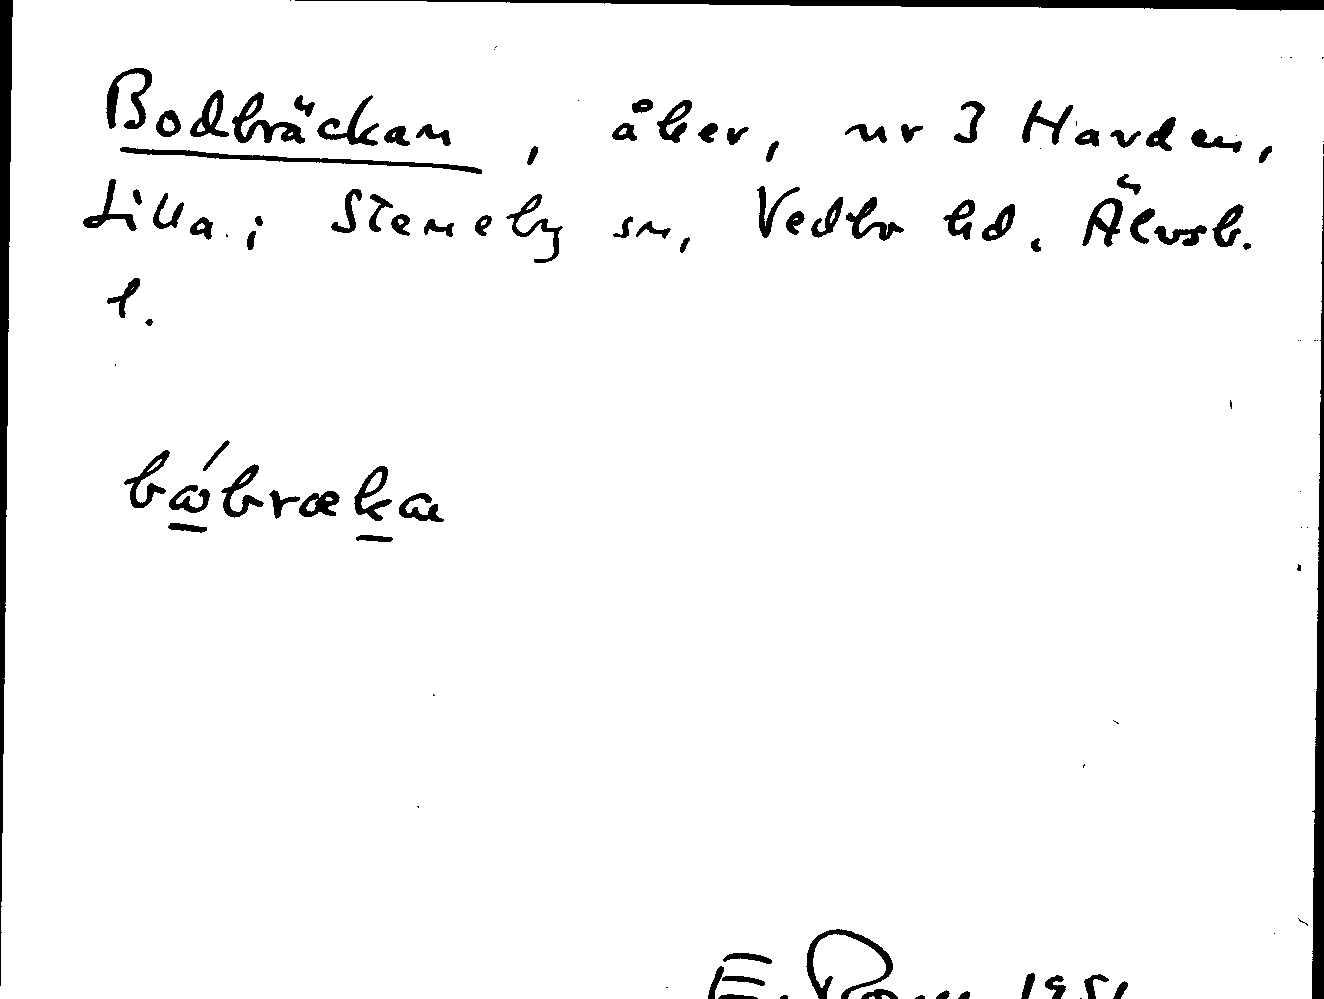 Bodbräckan, åker, nr 3 Harden,
Lilla; Steneby sn, Vedbo hd. Älvsb.
l.
bώbrækaɩ
1951